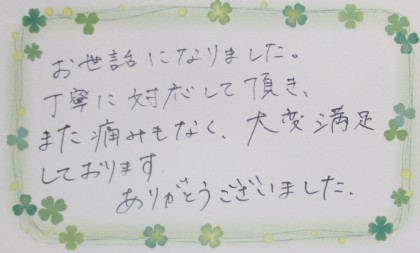 お世話になりました。
丁寧に対応して頂き、
また痛みもなく、大変満足
しております
ありがとうございました.